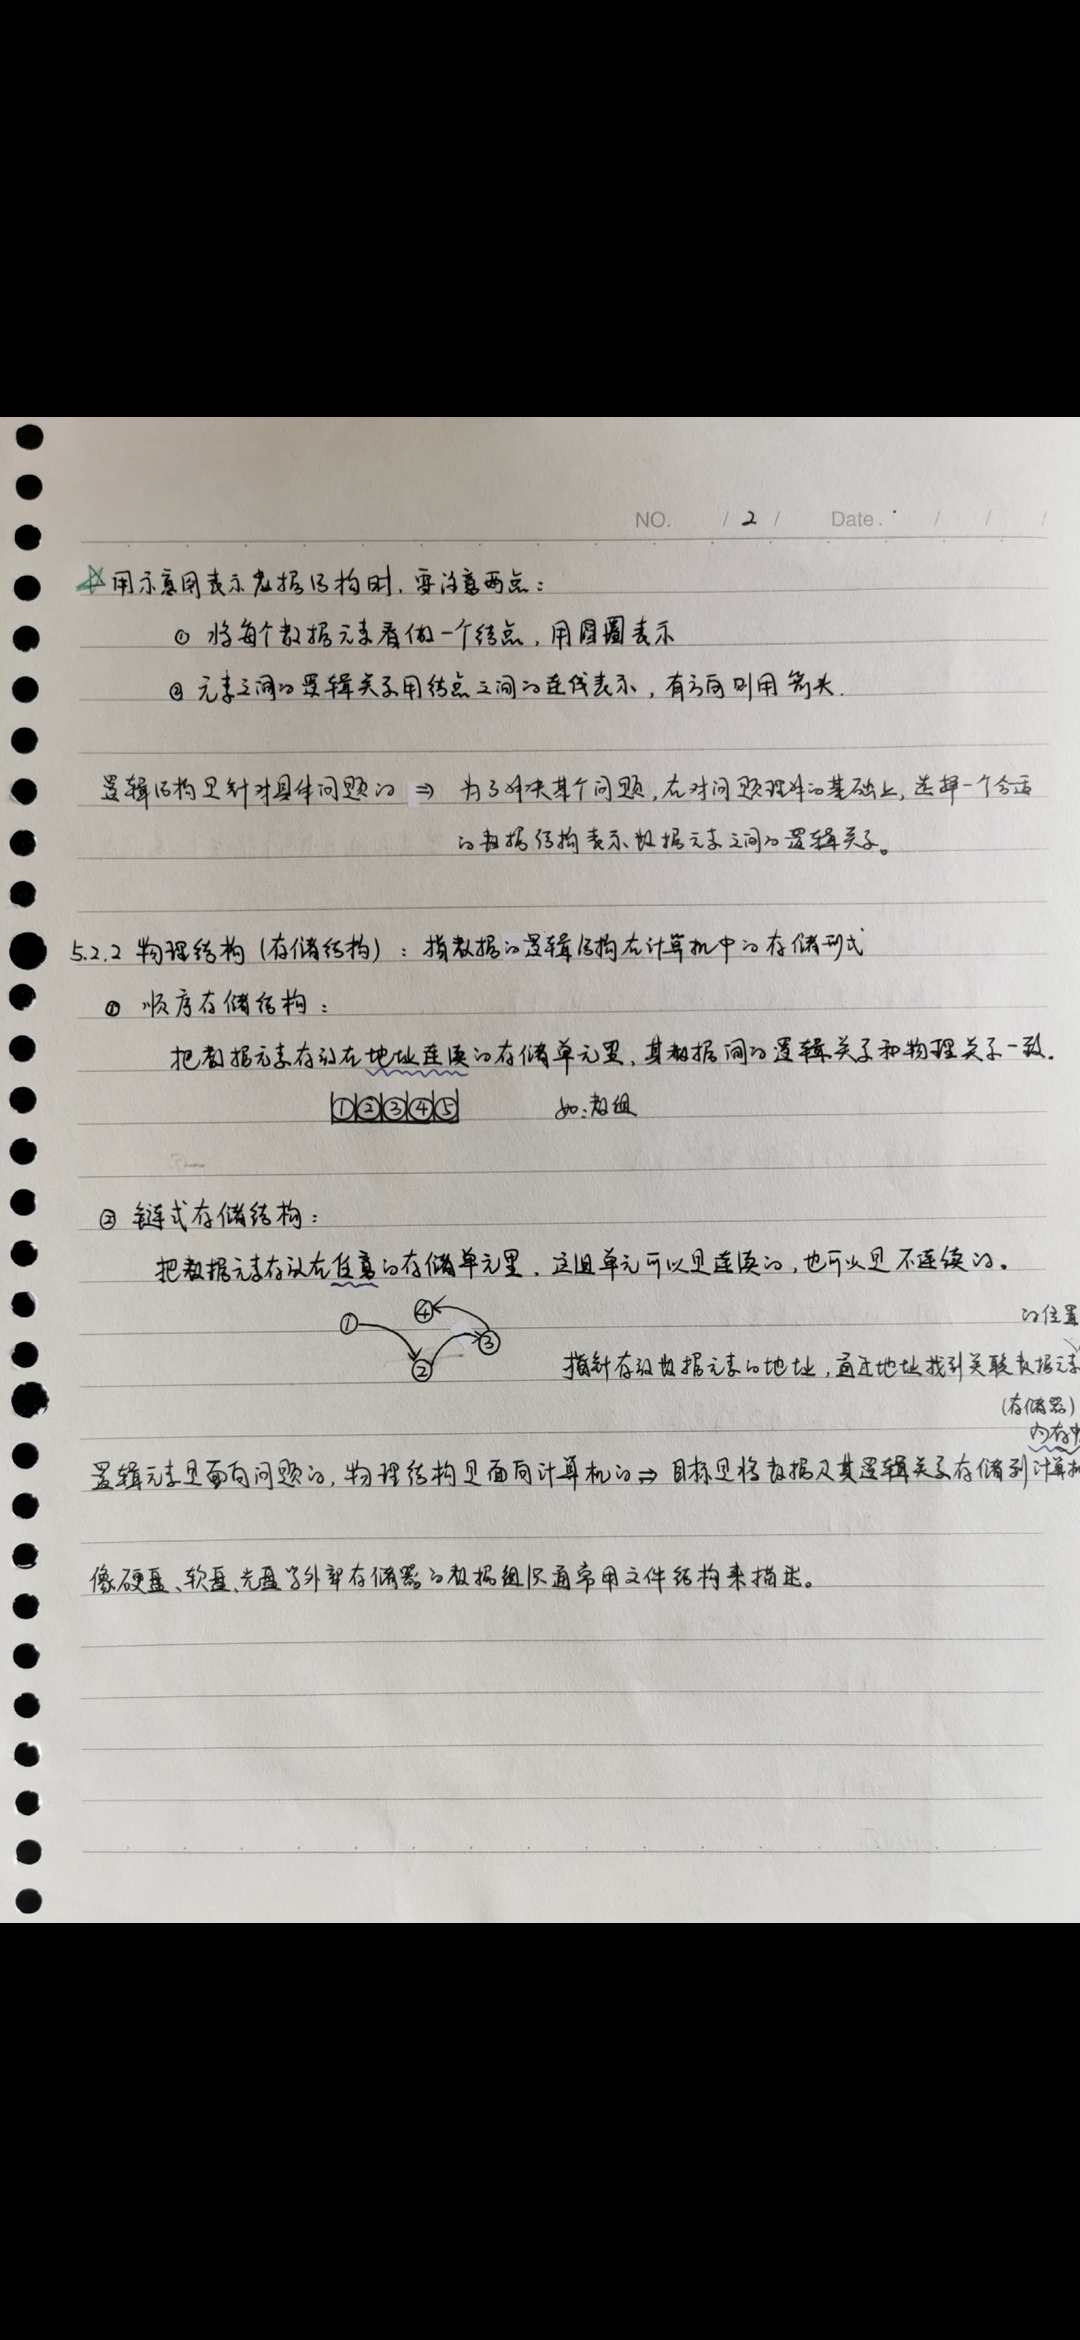 NO. / 2 / Date. / / /
☆用示意图表示数据结构时，要注意两点：
① 将每个数据元素看做一个结点，用圆圈表示
② 元素之间的逻辑关系用结点之间的连线表示，有方向则用箭头.
逻辑结构是针对具体问题的 ⇒ 为了解决某个问题，在对问题理解的基础上，选择一个合适
的数据结构表示数据元素之间的逻辑关系。
5.2.2 物理结构（存储结构）：指数据的逻辑结构在计算机中的存储形式
① 顺序存储结构：
把数据元素存放在地址连续的存储单元里，其数据间的逻辑关系和物理关系一致.
①②③④⑤ 如：数组
② 链式存储结构：
把数据元素存放在任意的存储单元里，这组单元可以是连续的，也可以是不连续的。
① ④
② ③
的位置
指针存放数据元素的地址，通过地址找到关联数据元素
（存储器）
内存中
逻辑元素是面向问题的，物理结构是面向计算机的⇒目标是将数据及其逻辑关系存储到计算机
像硬盘、软盘、光盘等外部存储器的数据组织通常用文件结构来描述。